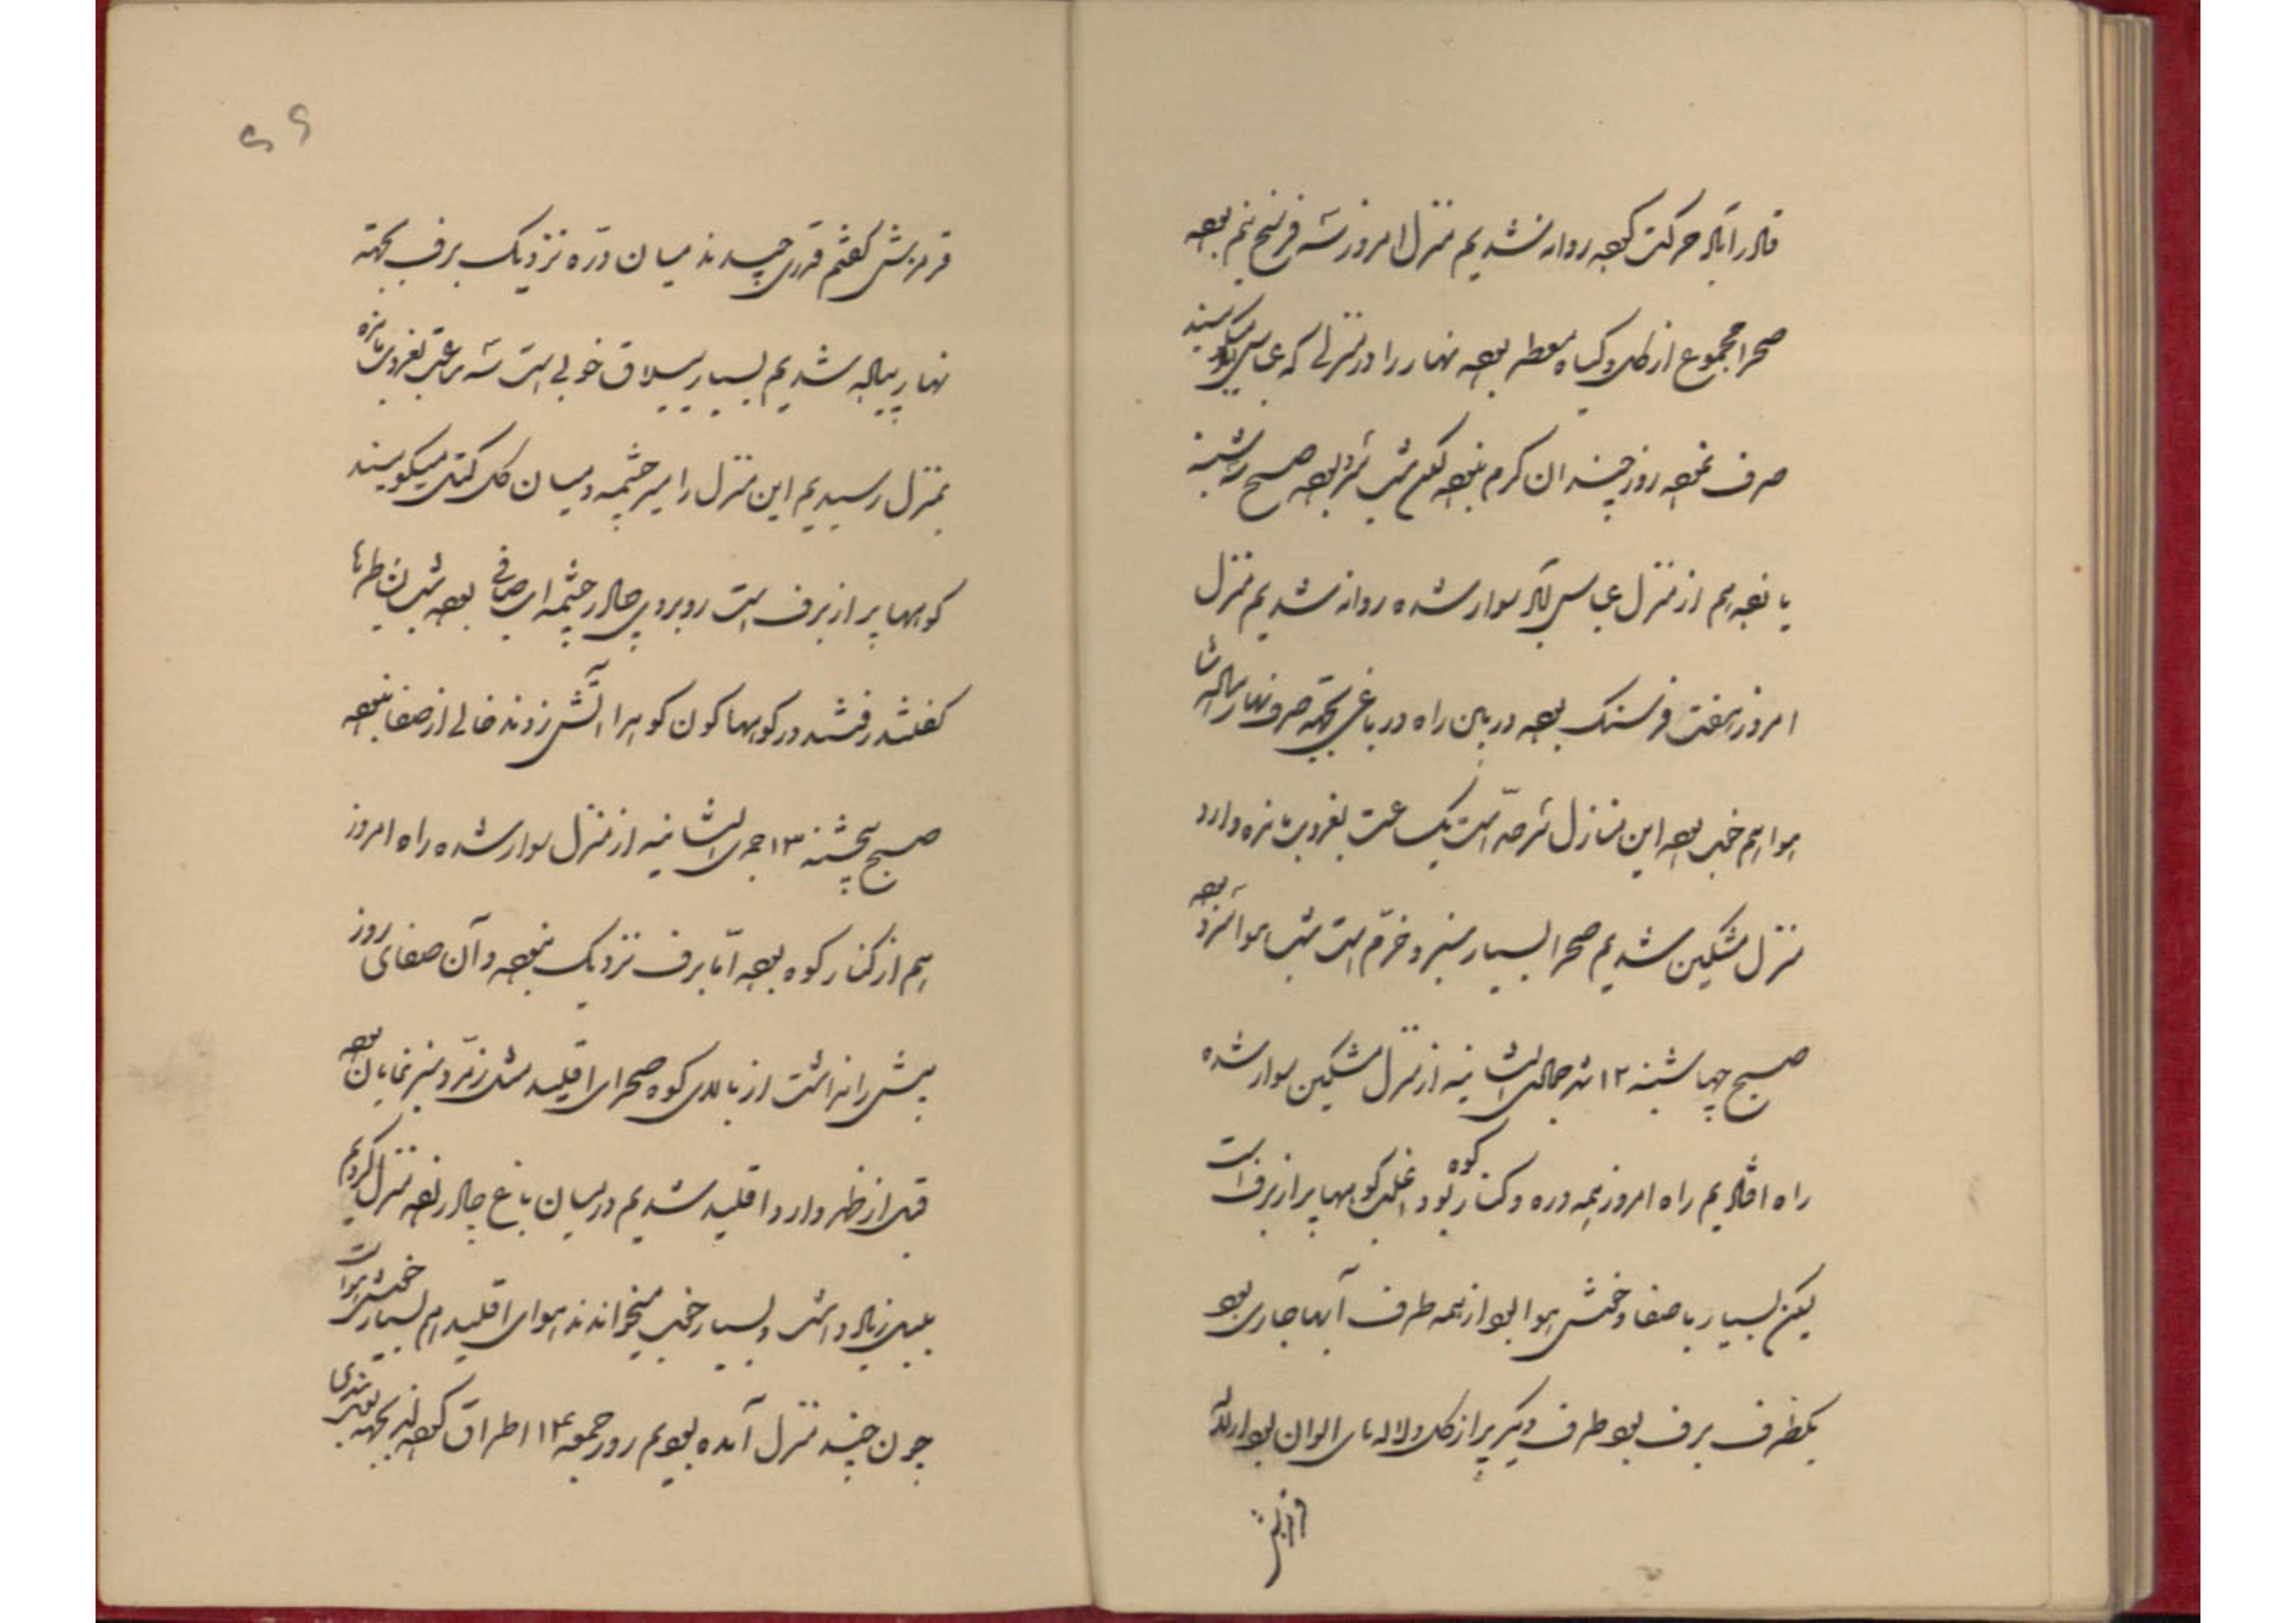 قادرآباد حرکت کرده روانه شدیم منزل امروز سه فرسخ نیم بوده
صحرا مجموع از گل و گیاه معطر بوده نهار را در منزلی که عباس‌آباد میگویند
صرف نموده روز چندان گرم نبوده لکن شب سرد بوده صبح سه‌شنبه
یازدهم از منزل عباس‌آباد سوار شده روانه شدیم منزل
امروز هفت فرسنگ بوده در بین راه در باغی بجهة صرف نهار پیاده شدیم
هوا هم خوب بوده این منازل سرحد است یک ساعت بغروب مانده وارد
منزل مشکین شدیم صحرا بسیار سبز و خرّم است شب هوا سرد بوده
صبح چهارشنبه ۱۲ شهر جمادی الثانیه از منزل مشکین سوار شده
راه افتادیم راه امروز همه دره و کنار کوه بود اغلب کوهها پر از برف است
لیکن بسیار با صفا و خوش هوا بود از همه طرف آبها جاری بود
یکطرف برف بود طرف دیگر پر از گل و لاله‌های الوان بود
قرمزش
قرمزش گفتم قدری چیدند میان درّه نزدیک برف بجهة
نهار پیاده شدیم بسیار ییلاق خوبی است سه ساعت بغروب مانده
بمنزل رسیدیم این منزل را سرچشمه و میان میگویند
کوهها پر از برف است روبروی چادر چشمه آب صافی بوده شب
رفتند در کوهها کون کوهرا آتش زدند خالی از صفا نبوده
صبح پنجشنبه ۱۳ جمادی الثانیه از منزل سوار شده راه امروز
هم از کنار کوه بوده امّا برف نزدیک نبوده و آن صفای روز
پیش را نداشت از بالای کوه صحرای اقلید مثل زمرّد سبز نمایان بوده
قبل از ظهر وارد اقلید شدیم در میان باغ چادر زده منزل کردیم
بلبل زیاد داشت و بسیار خوب میخواندند هوای اقلید هم بسیار خوش هوا است
چون چند منزل آمده بودیم روز جمعه ۱۴ اطراق کرده بجهة